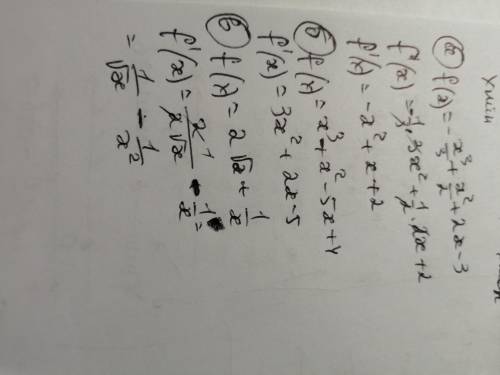 а) f(x) = -x³/3 + x²/2 + 2x - 3
f'(x) = -1/3 · 3x² + 1/2 · 2x + 2
f'(x) = -x² + x + 2
б) f(x) = x³ + x² - 5x + 4
f'(x) = 3x² + 2x - 5
в) f(x) = 2√x + 1/x
f'(x) = 2·1/2√x - 1/x =
= 1/√x - 1/x²